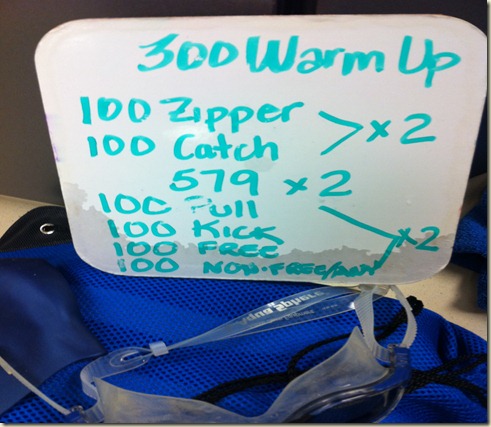 300 Warm Up
100 Zipper
100 Catch > x 2
579 x 2
100 Pull
100 Kick
100 FREE x 2
100 NON-FREE/